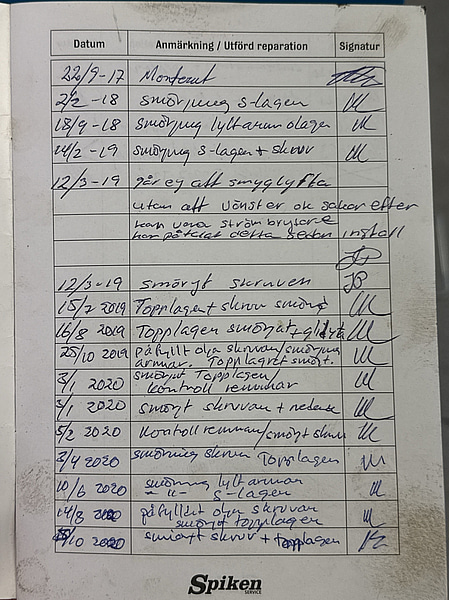 Datum Anmärkning / Utförd reparation Signatur
22/9-17 Monterat
2/2 -18 smörjning s-lagen
18/9 -18 smörjning lyftarm o lagen
14/2 -19 smörjning s-lagen + skruv
12/3-19 går ej att smyglyfta
utan att vänster ok sakar efter
kan vara strömbrytare
har påtalat detta sedan install
JP
12/3-19 smörjt skruven JP
15/7 2019 Topplagen + skruv smörjt
16/8 2019 Topplagen smörjat +
25/10 2019 påfyllt olja skruvar/smörjning
armar. Topplagret smörjt.
3/1 2020 smörjat Topplagen/
kontroll remmar
3/1 2020 smörjt skruvar + nedre
5/2 2020 Kontroll remmar/smörjt skruv
3/4 2020 smörjning skruv Topplagen
10/6 2020 smörjning lyftarmar
- " - s-lagen
14/8 2020 påfylld olja skruvar
smörjt topplagen
/10 2020 smörjt skruv + topplagen
Spiken
SERVICE